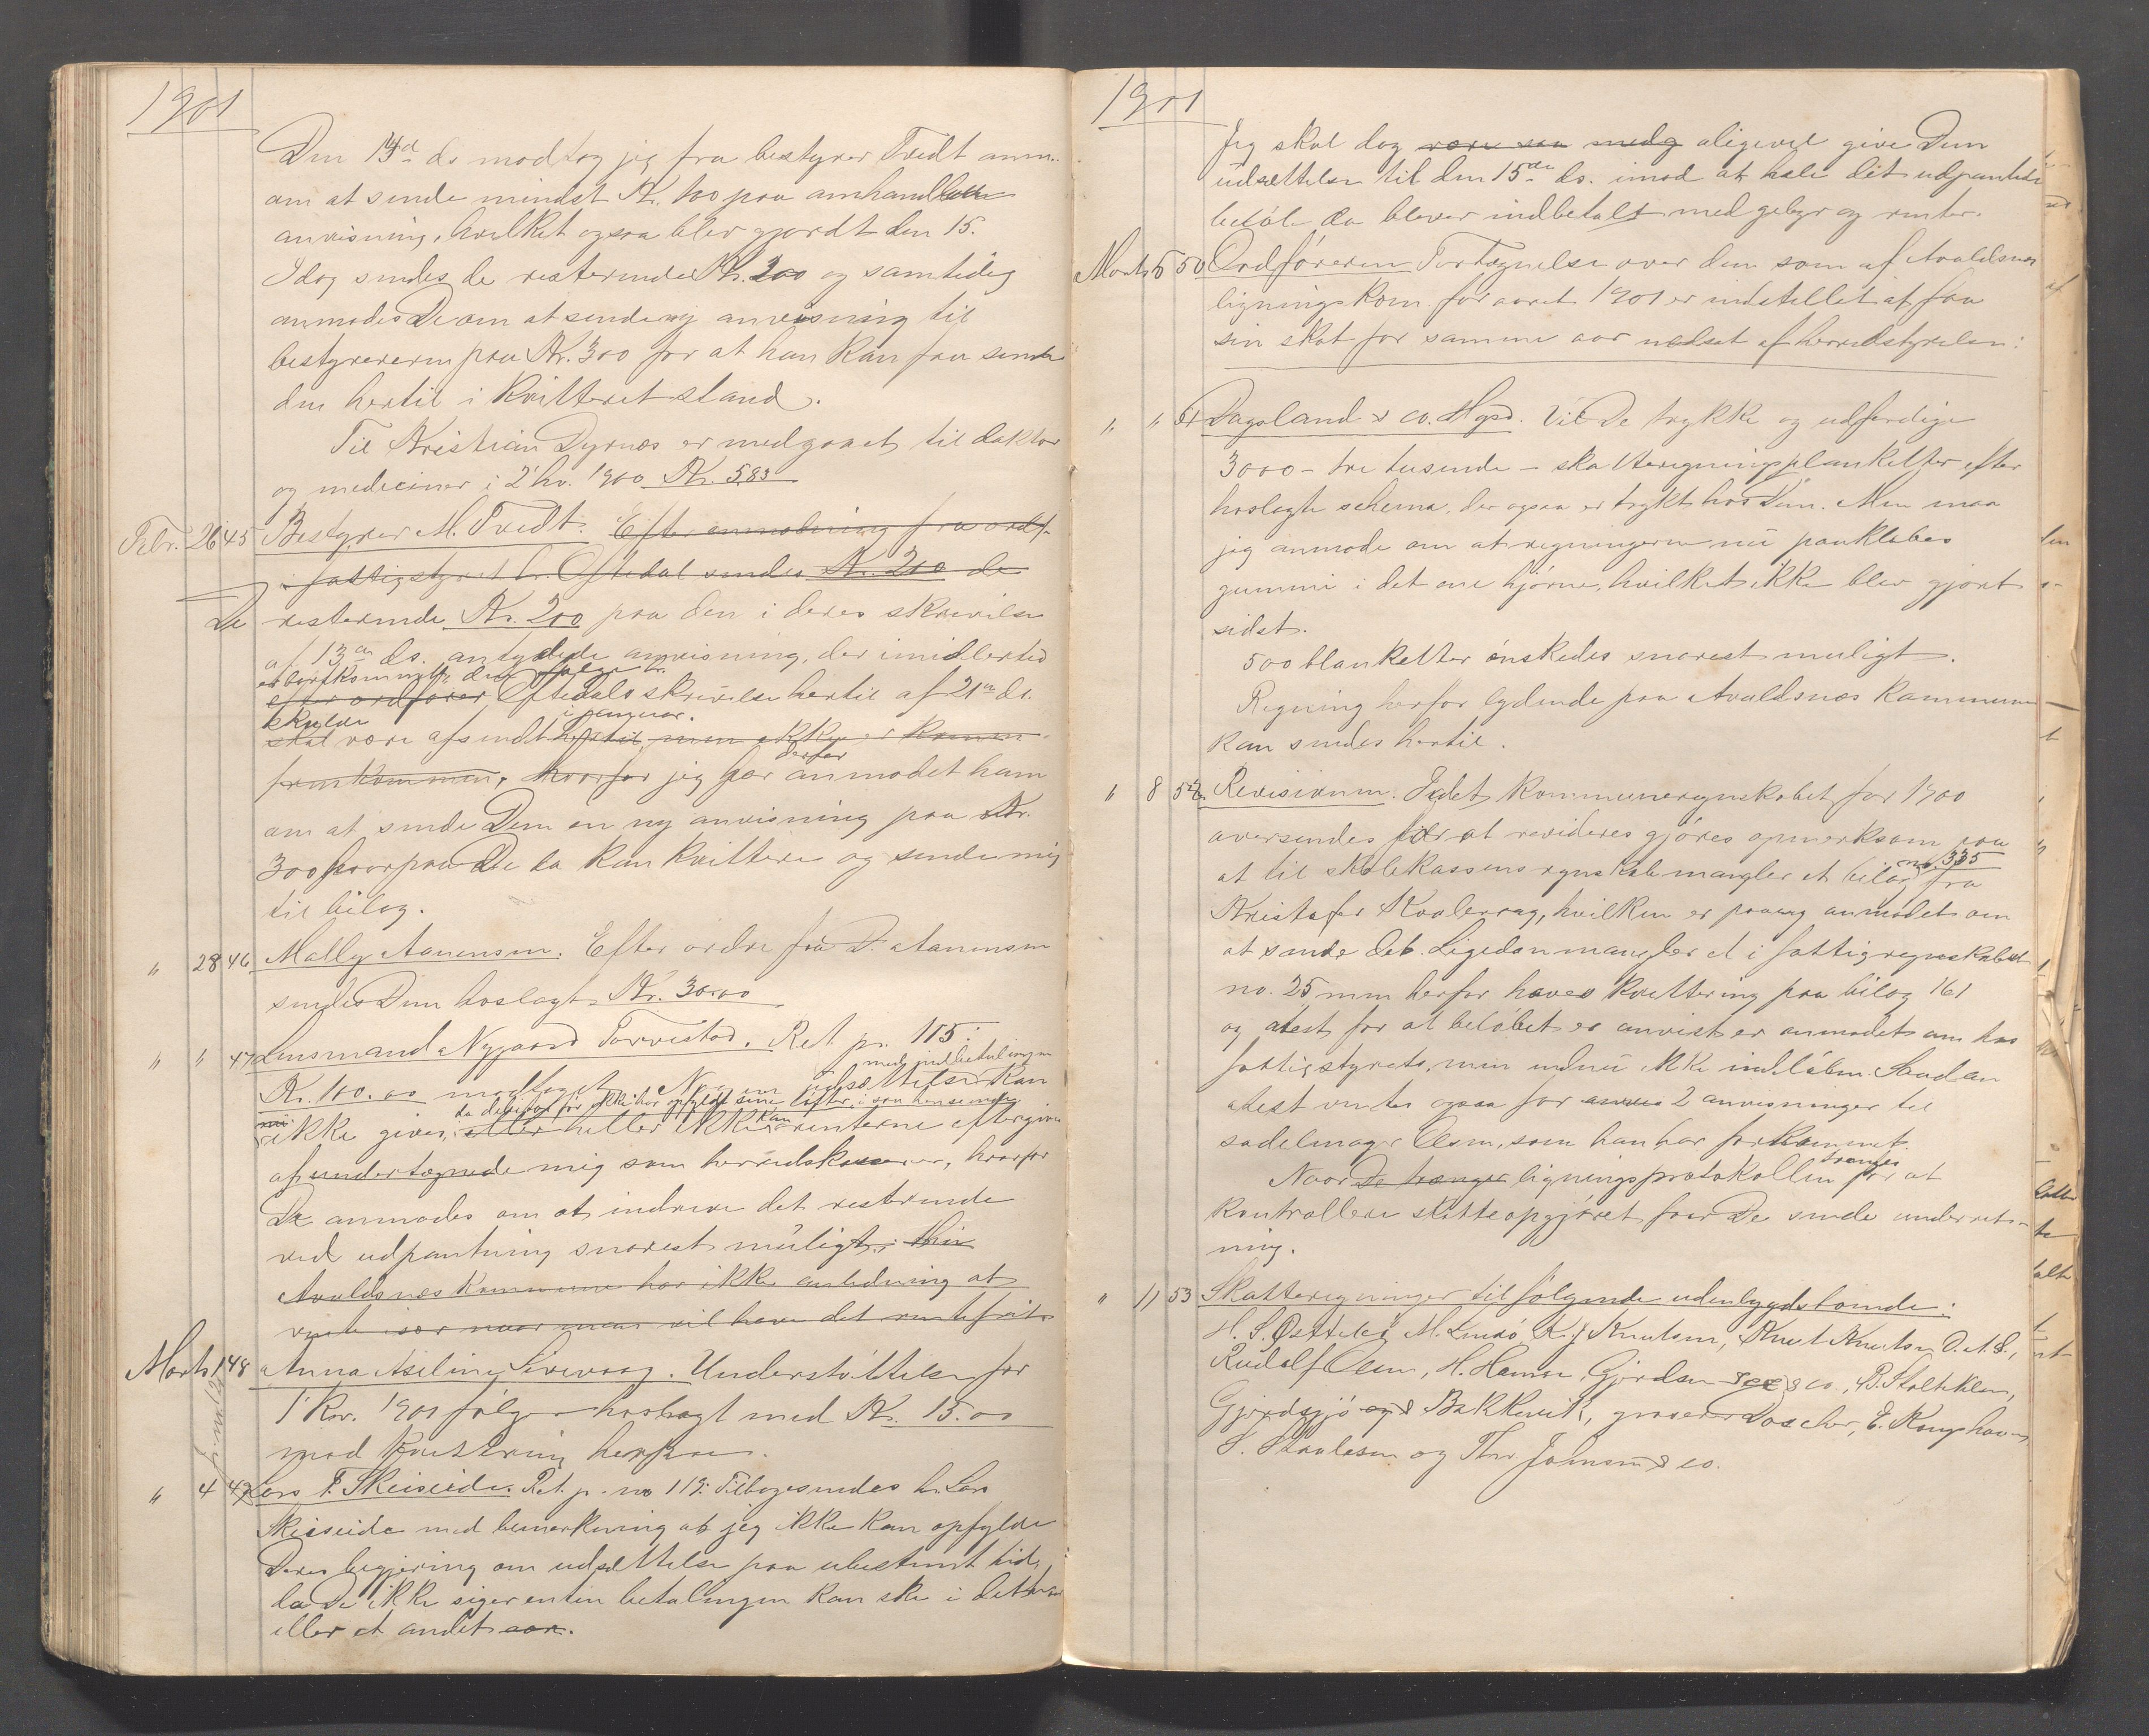 1901
Den 14d ds modtog jeg fra bestyrer Tvedt anm.
om at sende mindst Kr. 100 paa omhandlede
anvisning, hvilket ogsaa blev gjordt den 15.
Idag sendes de resterende Kr. 200 og samtidig
anmodes De om at sende ny anvisning til
bestyreren paa Kr. 300 for at han kan faa sende
den hertil i kvitteret stand.
Til Kristian Dyrnes er medgaaet til doktor
og mediciner i 2' hv. 1900 Kr. 5,83
Febr. 26 45 Bestyrer M. Tvedt. Efter anmodning fra ordf.
i fattigstyret hr. Oftedal sendes Kr. 200 de
De resterende Kr. 200 paa den i deres skrivelse
af 13de ds. antydede anvisning, der imidlertid
er bortkommet, den ifølge hr.
efter ordfører Oftedals skrivelse hertil af 21de ds.
skulde i januar.
skal være afsendt hertil, men ikke er kommen
derfor
fremkommen, hvorfor jeg har anmodet ham
om at sende Dem en ny anvisning paa Kr.
300 hvorpaa De da kan kvittere og sende mig
til bilag.
" 28 46 Mally Aanensen. Efter ordre fra D. Aanensen
sendes Dem hoslagt Kr. 30.00
" " 47 Lensmand Nygaard Torvestad. Ret. pr. 115:
med indbetalingen
Kr. 100.00 modtaget. Nogen udsættelse kan
da debitor før ikke har opfyldt sine løfter i saa henseende
ikke gives, eller heller ikke kan renterne eftergives
af undertegnede mig som herredskasserer, hvorfor
De anmodes om at indrive det resterende
ved udpantning snarest muligt.
Avaldsnes kommune har ikke anledning at
vente især naar man vil have det rentefrit
Marts 1 48 Anna Aseline Sirevaag. Understøttelse for
1' kv. 1901 følger hoslagt med Kr. 15.00
mod kvittering herpaa.
" 4 49 Lars T. Skeiseide. Ret. p. no 119: Tilbagesendes hr. Lars
Skeiseide med bemerkning at jeg ikke kan opfylde
Deres begjæring om udsættelse paa ubestemt tid,
da De ikke siger enten betalingen kan ske i dette aar
eller et andet aar.
1901
Jeg skal dog være saa alligevel give Dem
udsættelse til den 15de ds. imod at hele det udpantede
beløb da bliver indbetalt med gebyr og renter.
Marts 5 50 Ordføreren Fortegnelse over dem som af Avaldsnes
ligningskom. for aaret 1901 er indstillet at faa
sin skat for samme aar nedsat af herredstyrelsen:
" " 51 Dagsland & co. Hgsd. Vil De trykke og udferdige
3000 - tre tusende - skatteregningsblanketter efter
hoslagte schema, der ogsaa er trykt hos Dem. Men maa
jeg anmode om at regningerne nu paaklæbes
gummi i det ene hjørne, hvilket ikke blev gjort
sidst.
500 blanketter ønskedes snarest muligt.
Regning herfor lydende paa Avaldsnes kommune
kan sendes hertil.
" 8 52 Revisionen. Idet kommuneregnskabet for 1900
oversendes for at revideres gjøres opmerksom paa
at til skolekassens regnskab mangler et bilag no. 335 fra
Kristofer Kvalevaag, hvilken er paany anmodet om
at sende det. Ligedan mangler et i fattigregnskabet
no. 25 men herfor haves kvittering paa bilag 161
og atest for at beløbet er anvist er anmodet om hos
fattigstyret, men endnu ikke indløben. Saadan
atest ventes ogsaa for 2 anvisninger til
sadelmager Olsen, som han har forkommet.
Naar De trænger ligningsprotokollen trænges for at
kontrollere skatteopgjøret faar De sende underret-
ning.
" 11 53 Skatteregninger til følgende udenbygdsboende:
H. S. Østhus, M. Lindø, K. J. Knutsen, Knut Knutsen O. A. S.,
Rudolf Olsen, H. Hansen, Gjerdsen & co., B. Stolt-Nielsen,
Gjerdsjø og Bakkevik, E. Kongshavn,
S. Staalesen og Thr Johnsen & co.